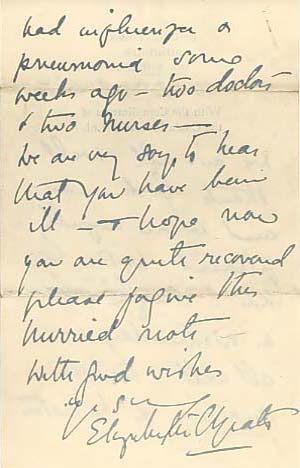 had influenza &
pneumonia some
weeks ago – two doctors
& two nurses –
We are very sorry to hear
that you have been
ill – & hope now
you are quite recovered
please forgive this
hurried note –
With good wishes
Elizabeth C Yeats